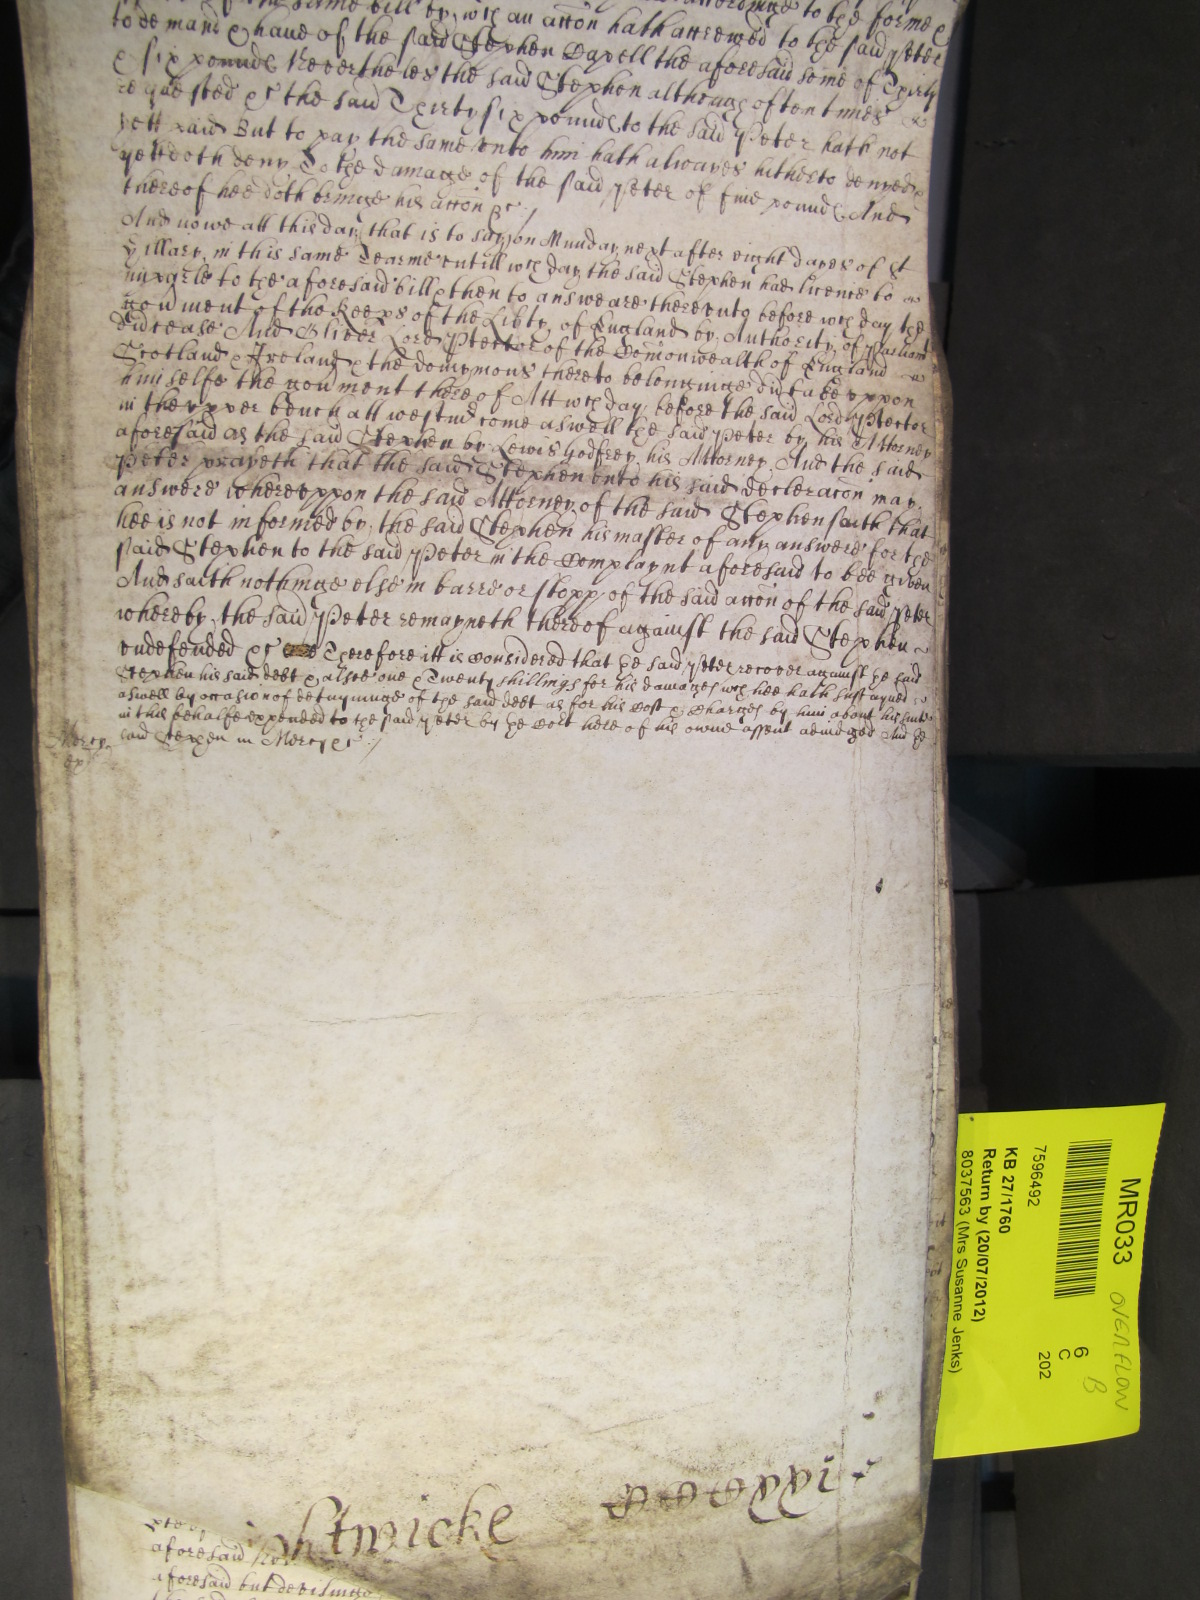 of the same bill by wch an accon hath accrewed to the said Peter
to demand & have of the said Stephen Capell the aforesaid some of Thirty
& six pounds Neverthelesse the said Stephen although oftentimes
requested &c the said Thirty six pounds to the said Peter hath not
yett paid But to pay the same unto him hath alwayes hitherto denyed &
yett doth deny To the damage of the said Peter of five pounds And
thereof hee doth bringe his accon &c
And nowe att this day that is to say on Munday next after eight dayes of St
Hillary in this same Tearme untill wch day the said Stephen had licence to
imparle to the aforesaid bill & then to answeare thereunto before wch day the
govment of the Keeps of the Libty of England by Authority of Parliamt
did cease And Oliver Lord Ptector of the Comonwealth of England
Scotland & Ireland & the dominions thereto belonginge did take uppon
himselfe the govment thereof Att wch day before the said Lord Ptector
in the upper bench att Westmr come aswell the said Peter by his Attorney
aforesaid as the said Stephen by Lewis Godfrey his Attorney And the said
Peter prayeth that the said Stephen unto his said declaracon may
answere whereuppon the said Attorney of the said Stephen saith that
hee is not informed by the said Stephen his master of any answere for the
said Stephen to the said Peter in the Complaynt aforesaid to bee given
And saith nothinge else in barre or stopp of the said accon of the said Peter
whereby the said Peter remayneth thereof against the said Stephen
undefended &c Therefore itt is Considered that he said Peter recover against he said
Stephen his said debt & alsoe one & Twenty shillings for his damages wch hee hath sustayned
aswell by occasion of detayninge of the said debt as for his Cost & Charges by him about his suite
in this behalfe expended to the said Peter by he Cort here of his owne assent adiudged And he
said Stephen in Mercy &c
Mercy
aforesaid
aforesaid but devisinge
MR033
OVERFLOW
B
6
C
202
7596492
KB 27/1760
Return by (20/07/2012)
8037563 (Mrs Susanne Jenks)